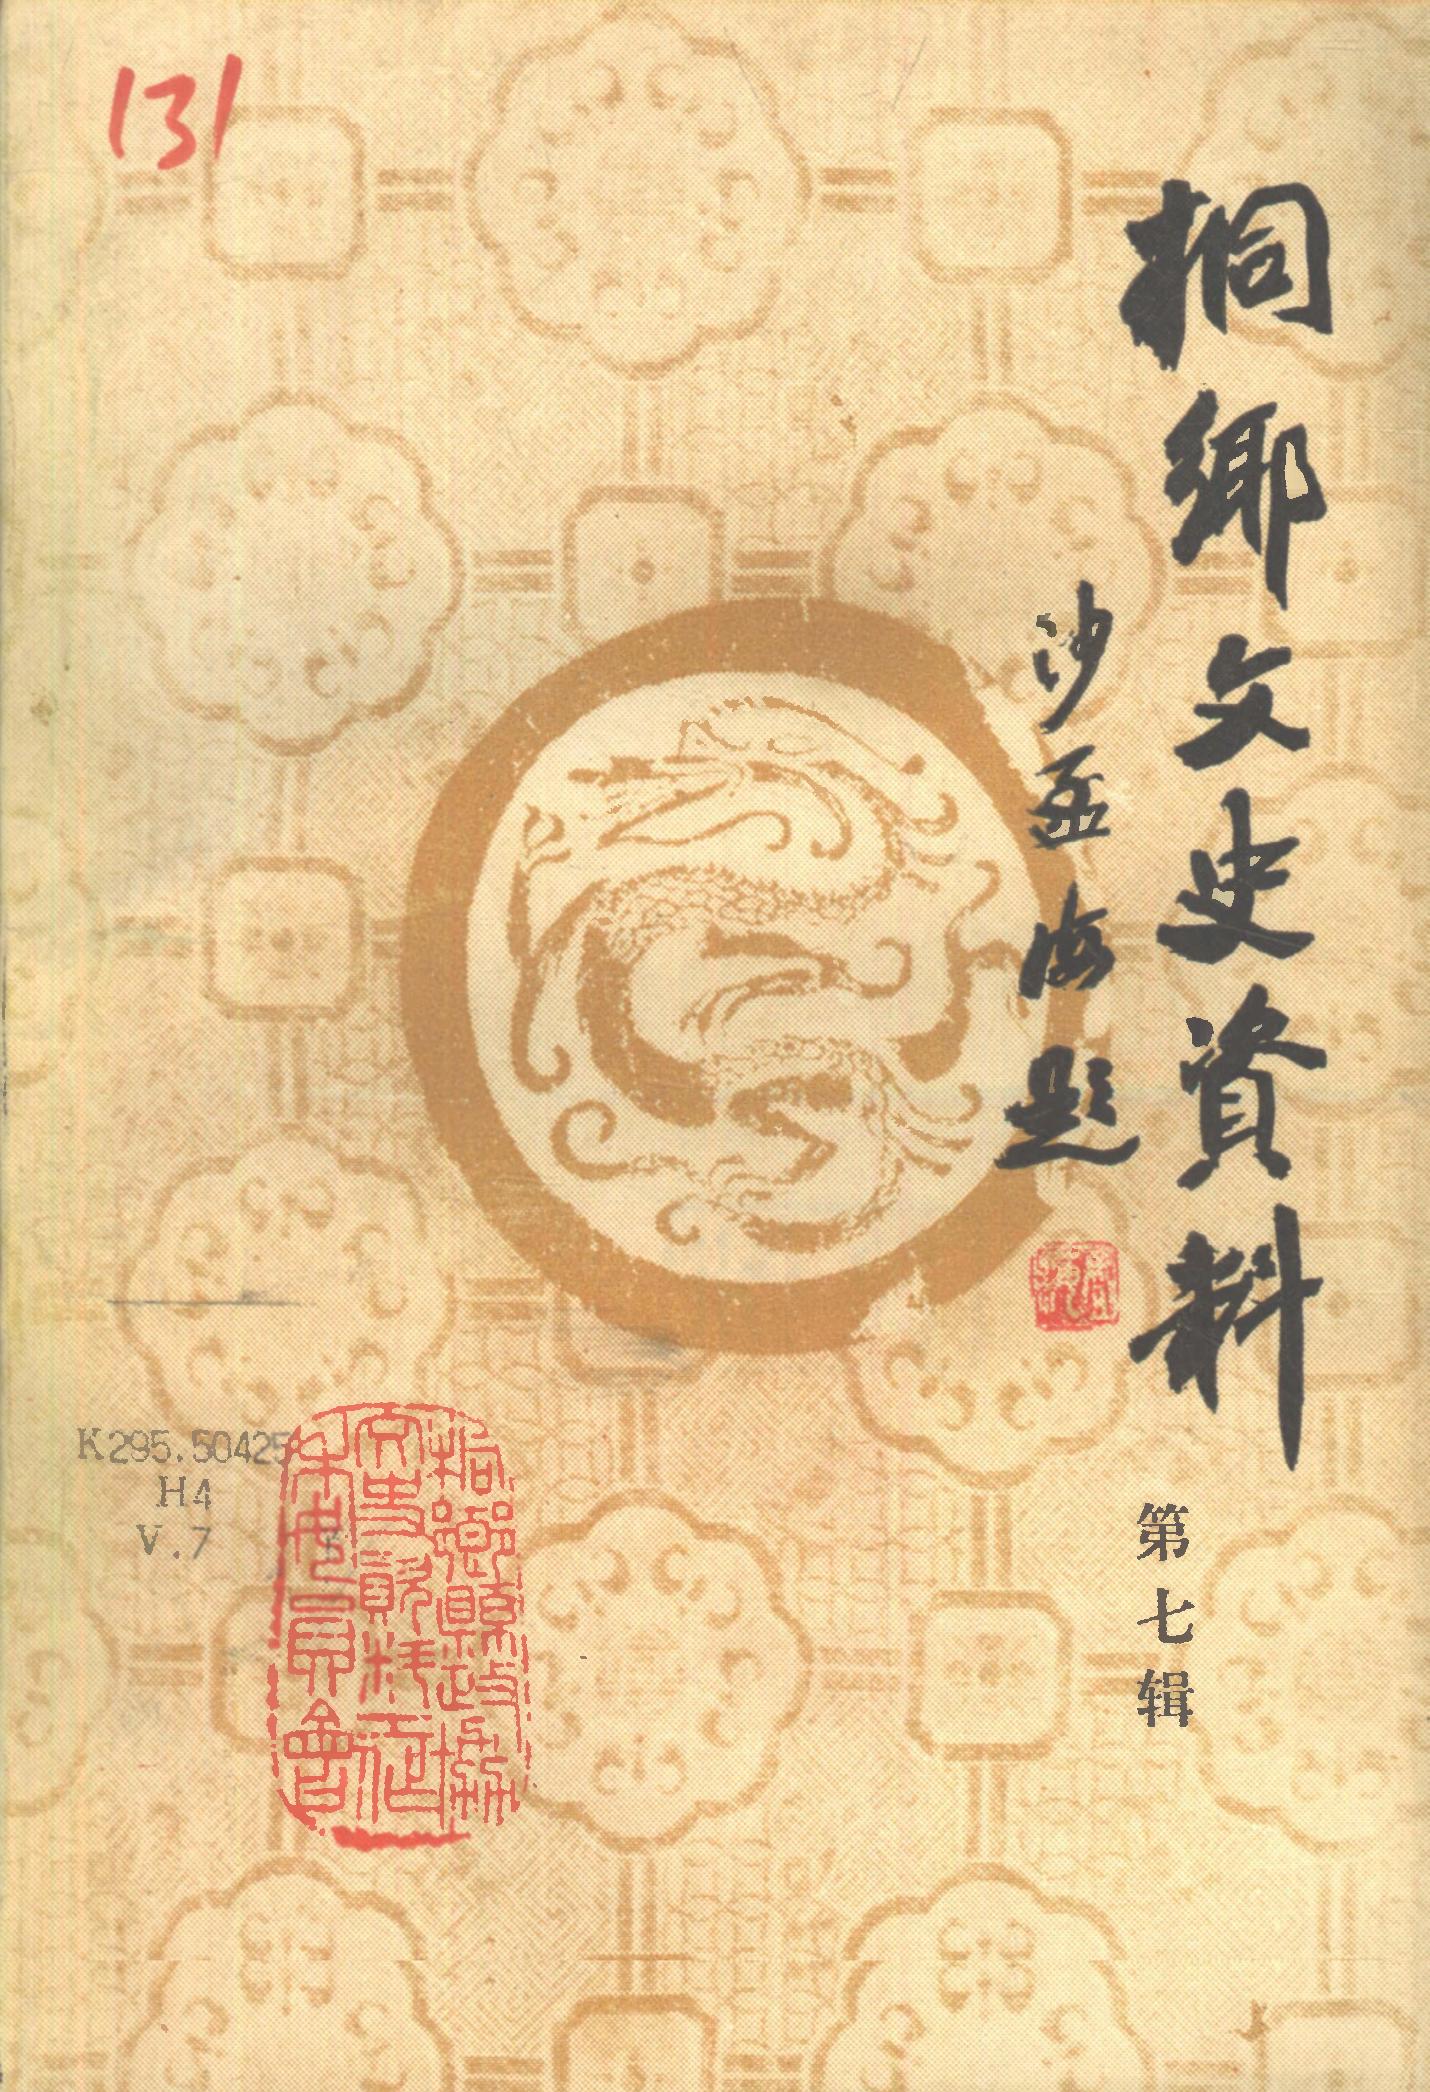 131
桐鄉文史資料
沙孟海題
第七辑
K295.50425
H4
V.7
桐鄉縣政協
文史資料征
集委員會